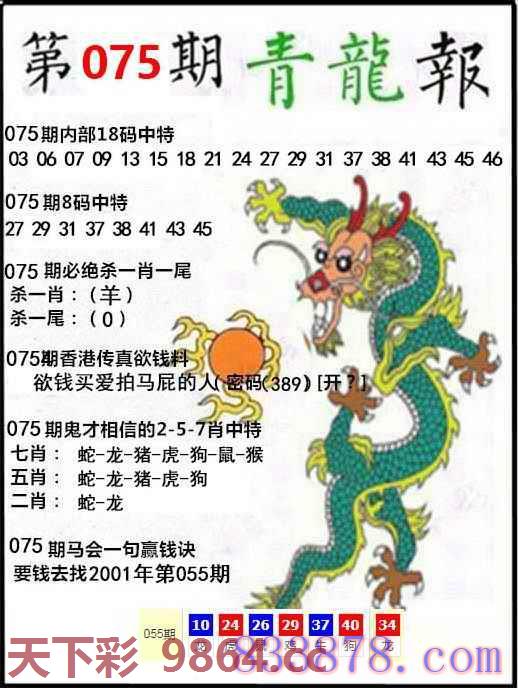 第075期青龍報
075期内部18码中特
03 06 07 09 13 15 18 21 24 27 29 31 37 38 41 43 45 46
075期8码中特
27 29 31 37 38 41 43 45
075期必绝杀一肖一尾
杀一肖：（羊）
杀一尾：（0）
075期香港传真欲钱料
欲钱买爱拍马屁的人(密码(389)[开？]
075期鬼才相信的2-5-7肖中特
七肖： 蛇-龙-猪-虎-狗-鼠-猴
五肖： 蛇-龙-猪-虎-狗
二肖： 蛇-龙
075期马会一句赢钱诀
要钱去找2001年第055期
055期 10 24 26 29 37 40 34
龙 虎 鼠 鸡 牛 狗 龙
天下彩 9864.cc
838878.com